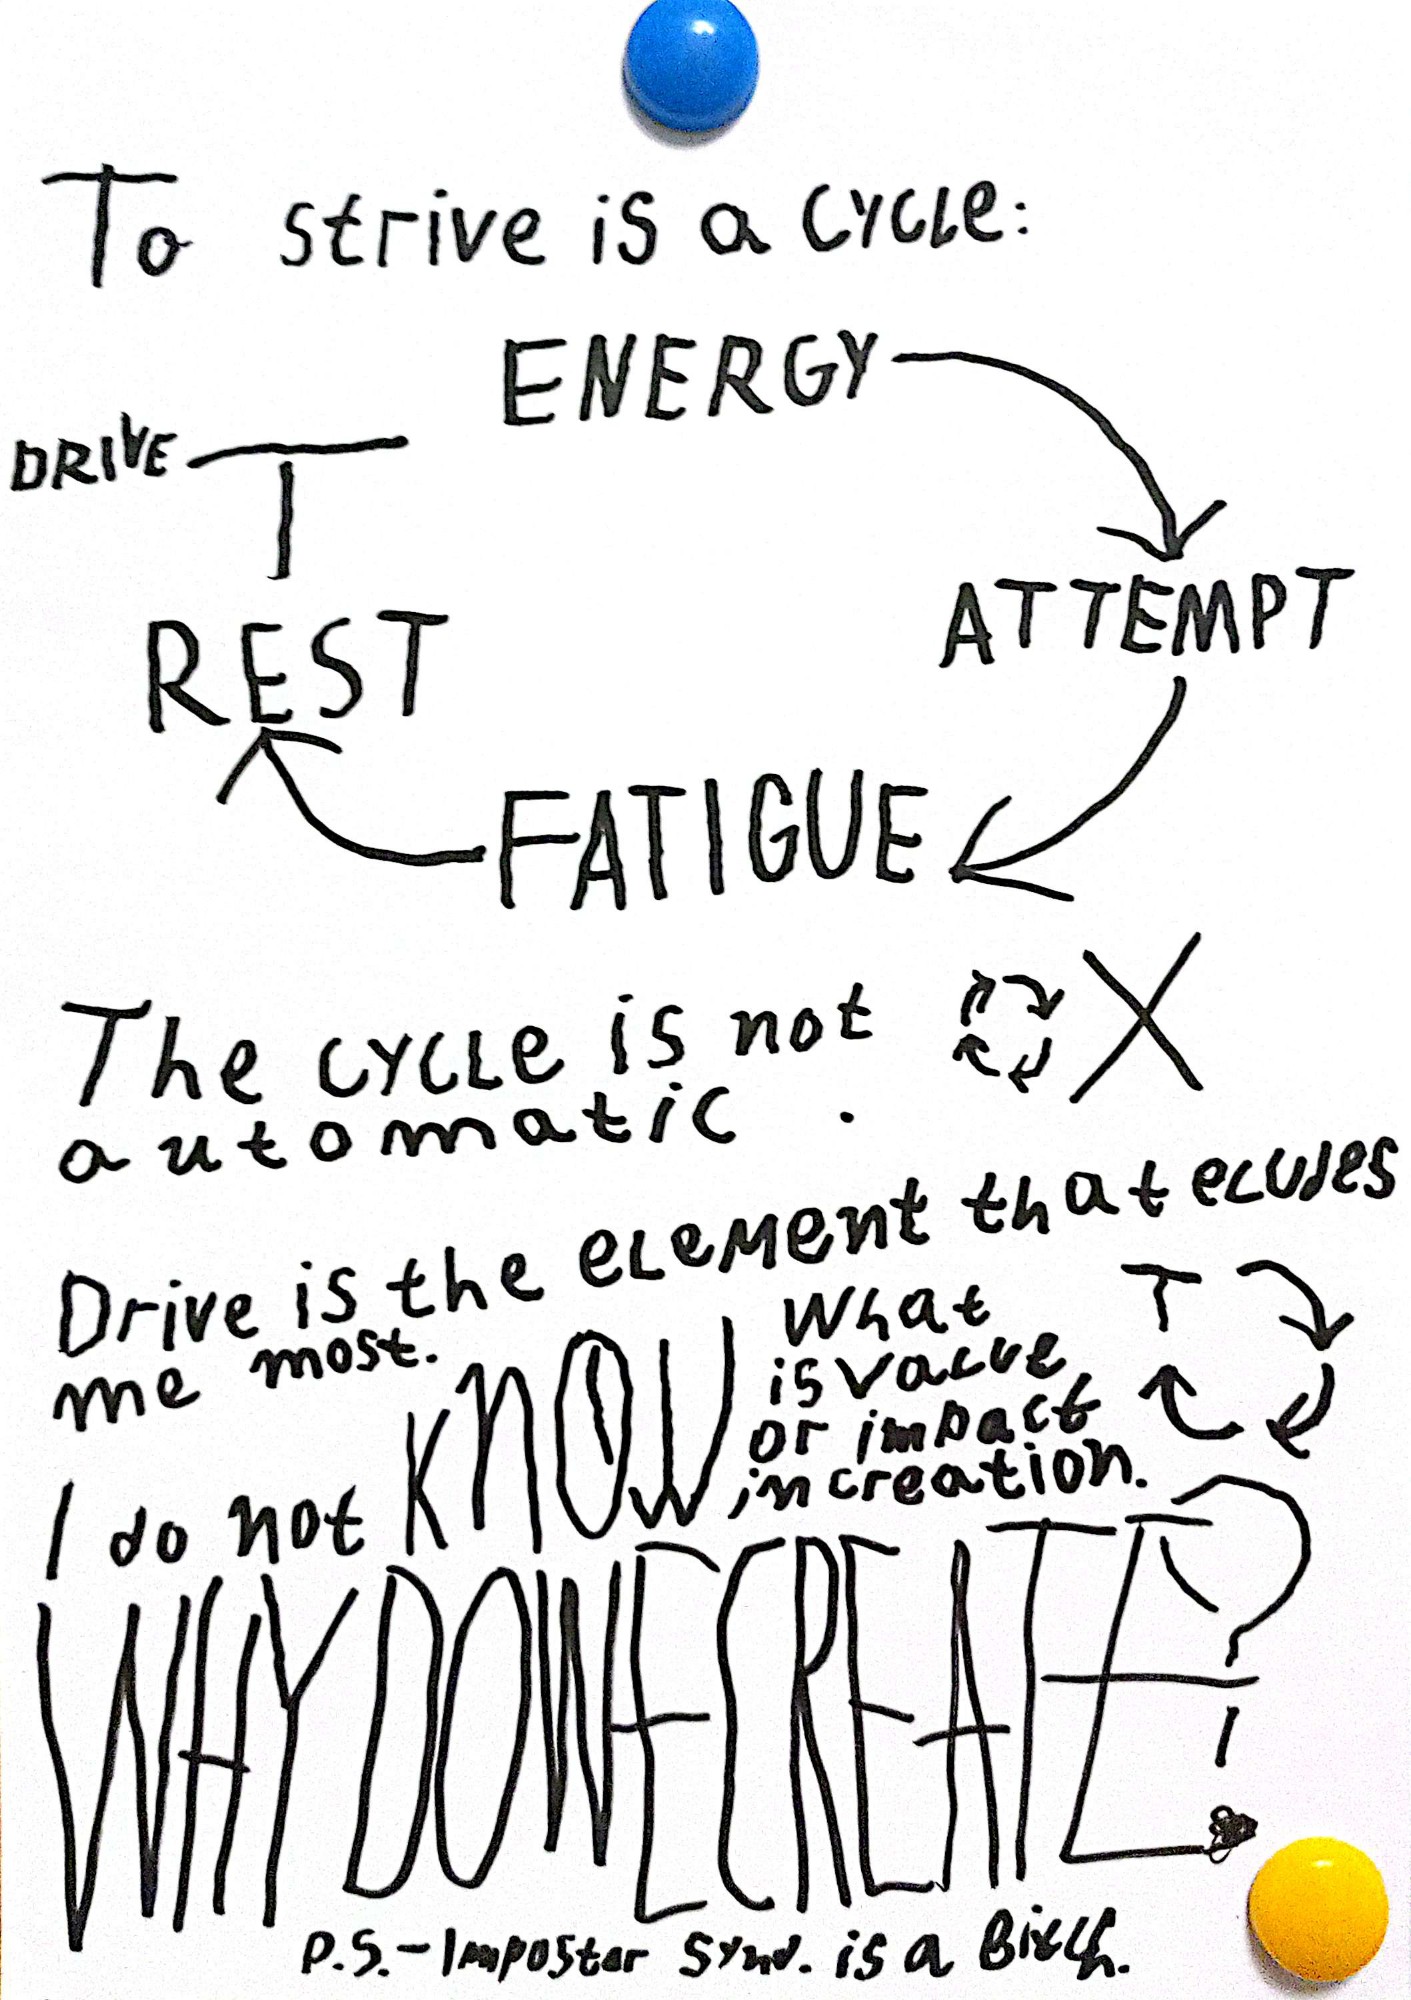 To strive is a cycle:
ENERGY
DRIVE
ATTEMPT
REST
FATIGUE
The cycle is not
automatic .
Drive is the element that ecudes
me most.
I do not KNOW What
is value
or impact
in creation.
WHY DO WE CREATE?
P.S.-Imposter Synd. is a Bitch.